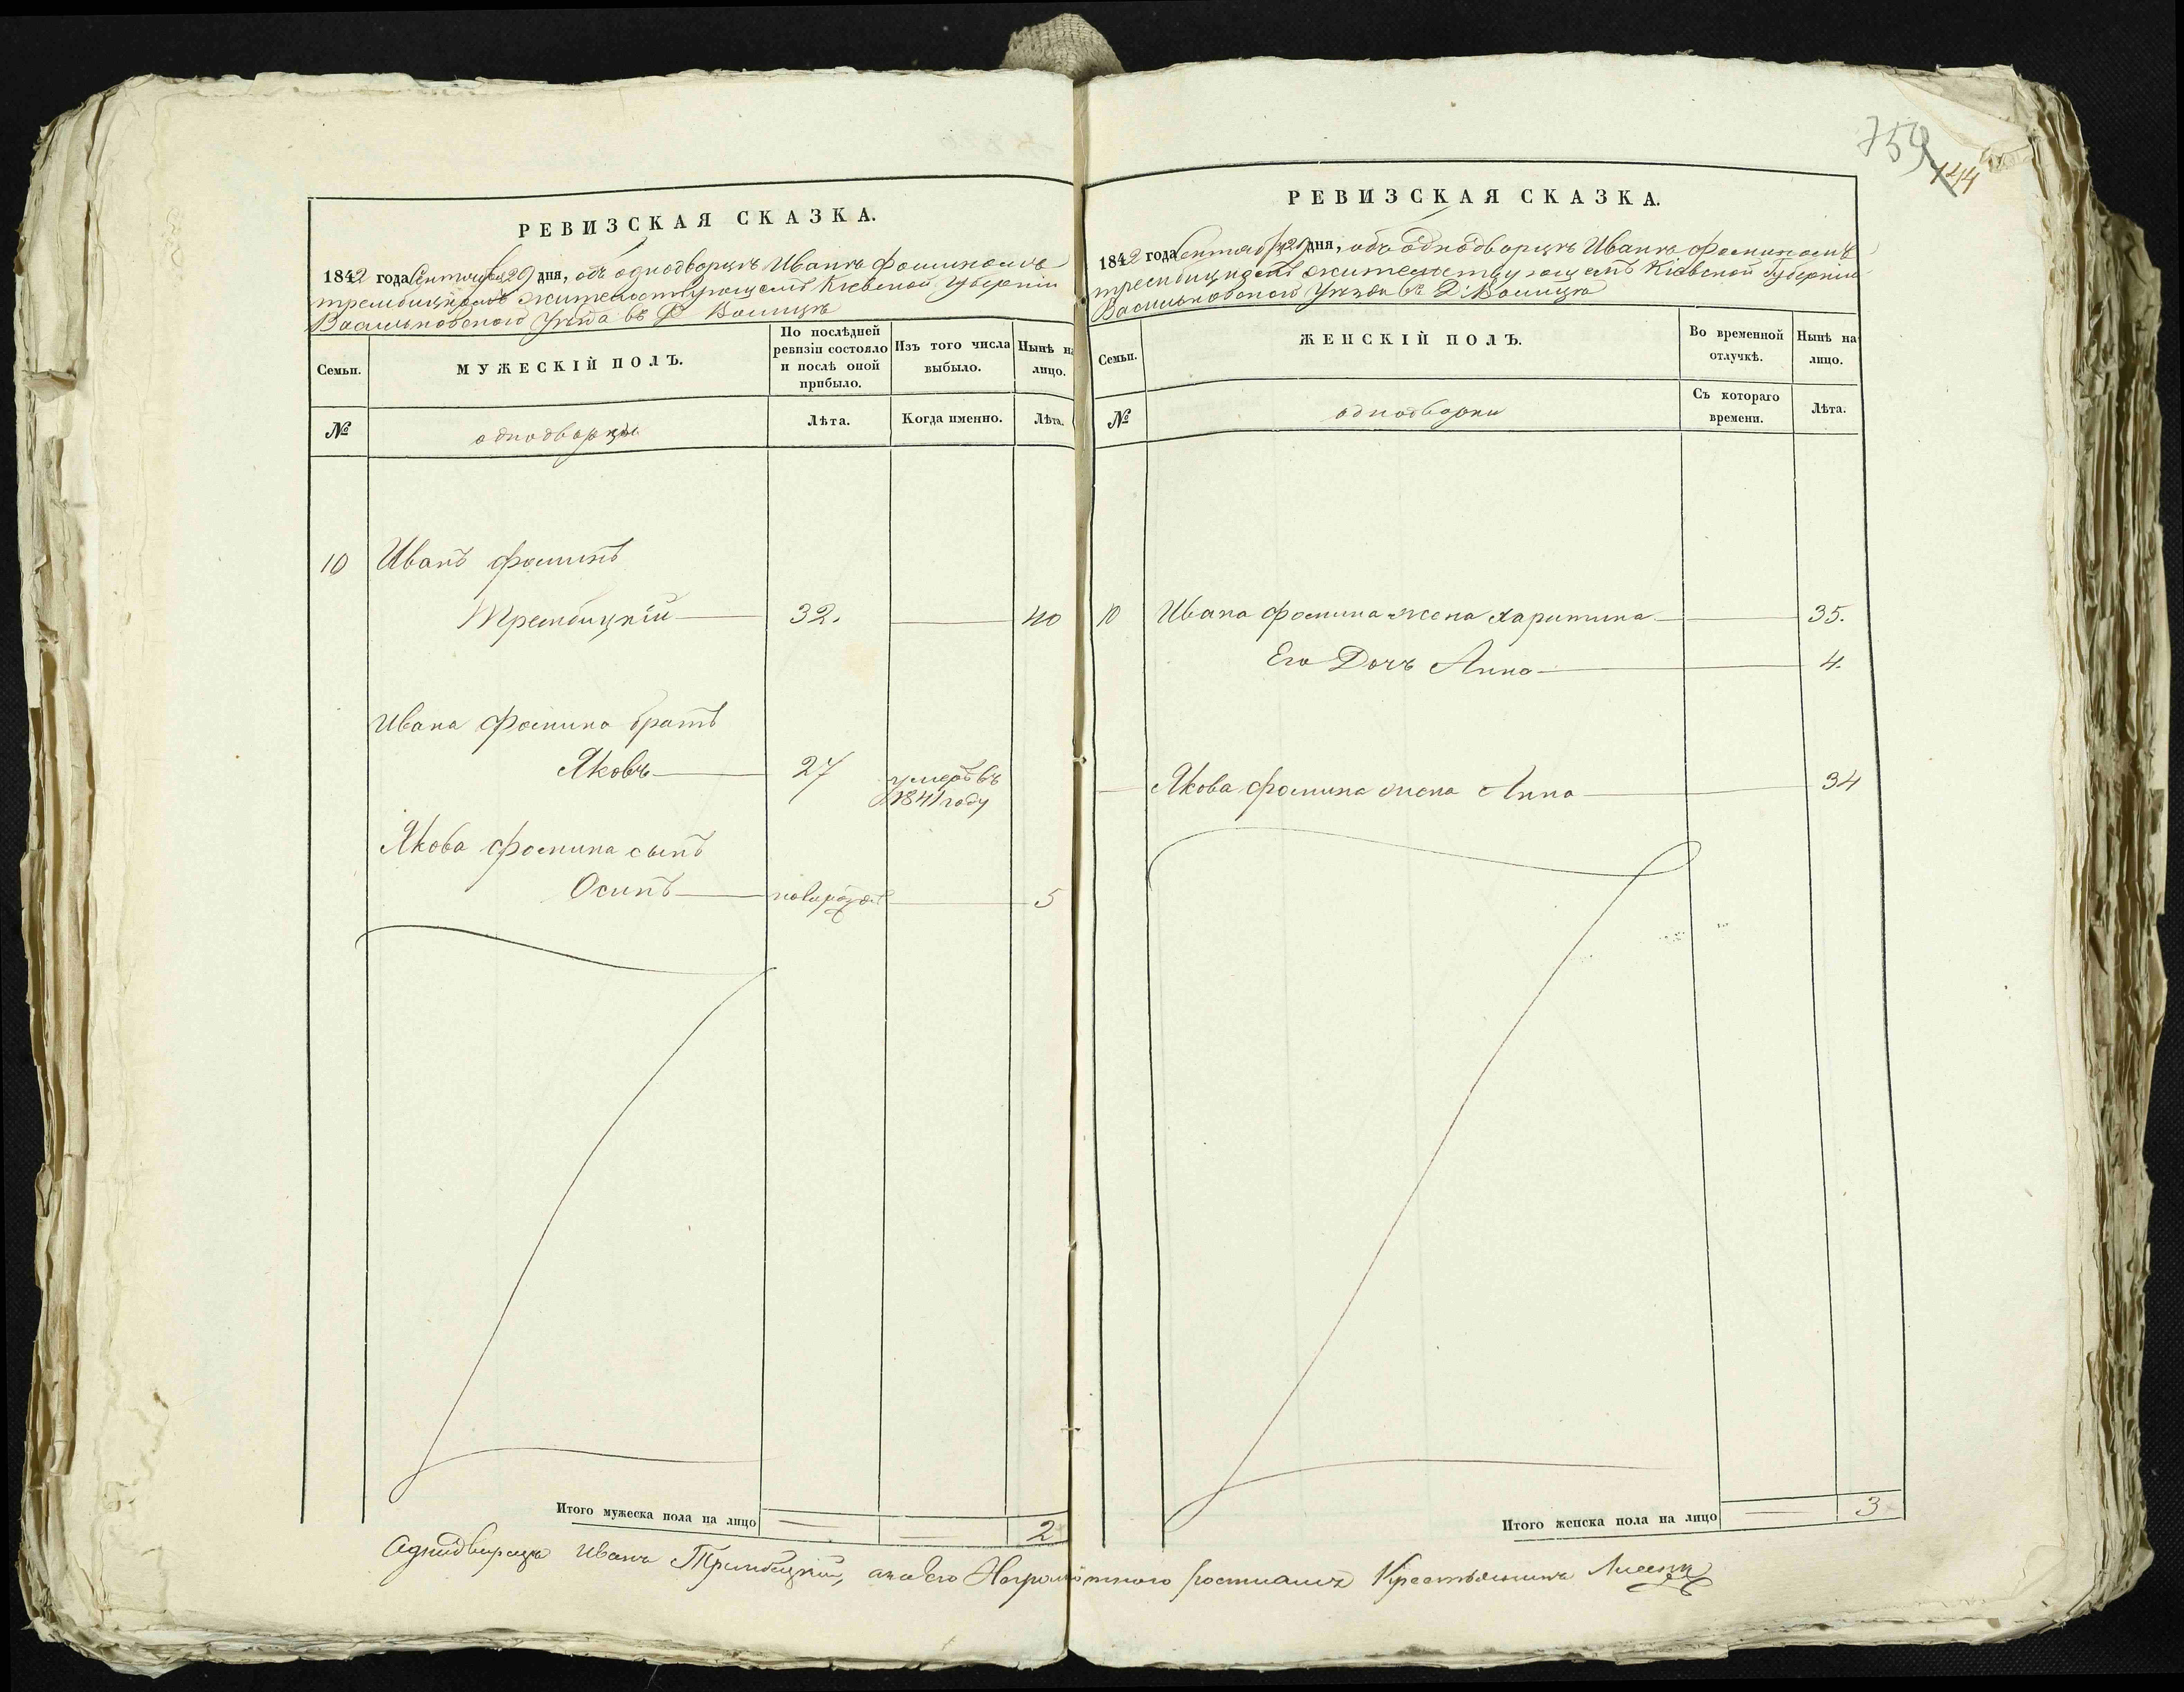 РЕВИЗСКАЯ СКАЗКА.
1842 года Сентября 29 дня, объ однодворцѣ Иванѣ Фоминомъ
трембицкомъ жительствующемъ Кіевской Губерніи
Васильковскаго Уѣзда въ Д
Семьи.
МУЖЕСКІЙ ПОЛЪ.
По послѣдней ревизіи состояло и послѣ оной прибыло.
Изъ того числа выбыло.
Нынѣ на лицо.
№
однодворцы
Лѣта.
Когда именно.
Лѣта.
10 Иванъ Фоминъ
Трембицкій 32. 40
Ивана Фомина братъ
Яковъ 27 умеръ въ
1841 году
Якова Фомина сынъ
Осипъ новорожд 5
Итого мужеска пола на лицо 2
РЕВИЗСКАЯ СКАЗКА.
1842 года Сентября 29 дня, объ однодворцѣ Иванѣ Фоминомъ
трембицкомъ жительствующемъ Кіевской Губерніи
Васильковскаго Уѣзда въ Д.
Семьи.
ЖЕНСКІЙ ПОЛЪ.
Во временной отлучкѣ.
Нынѣ на лицо.
№
однодворки
Съ котораго времени.
Лѣта.
10 Ивана Фомина жена Харитина 35.
Его Дочь Анна 4.
Якова Фомина жена Анна 34
Итого женска пола на лицо 3
Однодворецъ Иванъ Трембицкій, а за его Неграмотного росписался Крестьянинъ
759
144